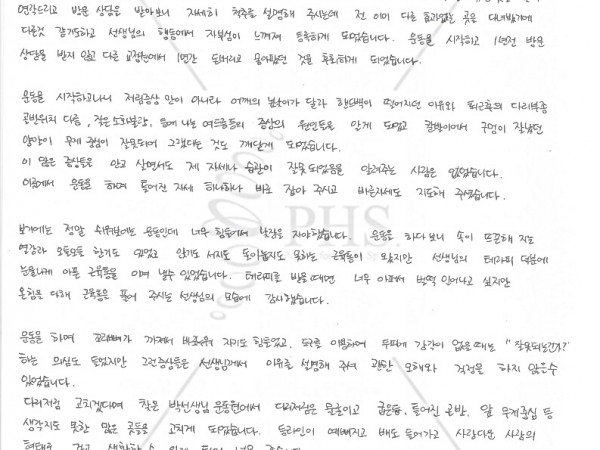 연락드리고 방문 상담을 받아보니 자세히 척추를 설명해 주시는데 전 이미 다른 효과없는 곳은 다녀봤기에
다를것 같기도하고 선생님의 행동에서 자부심이 느껴져 등록하게 되었습니다. 운동을 시작하고 1년전 방문
상담을 받지 않고 다른 교정원에서 1년간 돈버리고 돌아왔던 것을 후회하게 되었습니다.
운동을 시작하고나니 저림증상 만이 아니라 어깨의 높낮이가 달라 핸드백이 떨어지던 이유와 퇴근후의 다리부종
골반위치 다름, 잦은 소화불량, 등에 나는 여드름등의 증상의 원인들을 알게 되었고 양말이 구멍이 잘났던
양말이 무게 중심이 잘못되어 그랬다는 것도 깨닫게 되었습니다.
이 많은 증상들을 안고 살면서도 제 자세나 습관이 잘못 되었음을 알려주는 사람은 없었습니다.
이곳에서 운동을 하며 틀어진 자세 하나하나 바로 잡아 주시고 바른자세도 지도해 주셨습니다.
보기에는 정말 쉬워보이는 운동인데 너무 힘들어서 낮잠을 자야했습니다. 운동을 하다보니 속이 뜨끈해 지는
영감과 오들오들 한기도 있었고 앉기도 서지도 돌아눕지도 못하는 근육통이 왔지만 선생님의 테라피 덕분에
눈물나게 아픈 근육통을 이겨 낼수 있었습니다. 테라피를 받을때면 너무 아파서 벌떡 일어나고 싶지만
온힘을 다해 근육통을 풀어 주시는 선생님의 모습에 감사했습니다.
PHS.
운동을 하며 꼬리뼈가 까져서 바로누워 자기도 힘들었고, 도구를 이용하여 무파게 감각이 없을때는 "잘못되는건가?"
하는 의심도 들었지만 그런증상들을 선생님께서 이유를 설명해 주셔 괜한 오해와 걱정을 하지 않을수
있었습니다.
다리저림 고치겠다며 찾은 박선생님 운동원에서 다리저림은 물론이고 굽은등, 틀어진 골반, 앞 무게중심 등
생각지도 못한 많은 곳들을 고치게 되었습니다. 등라인이 예뻐지고 배도 들어가고 사람다운 사람의
형태를 갖고 생활할 수 있게 되어 너무